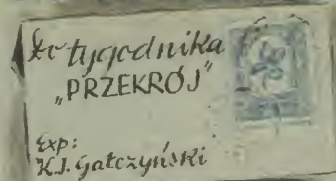 Do tygodnika
„PRZEKRÓJ”
Exp:
K.I. Gałczyński